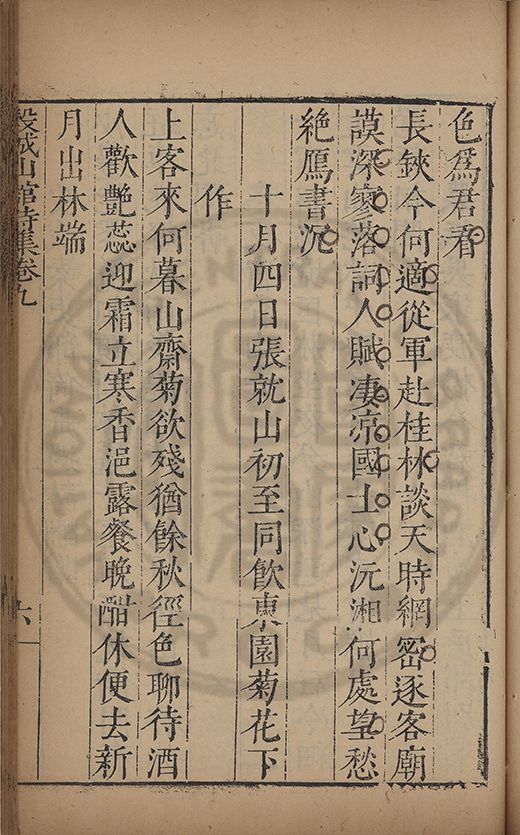 色為君看
長鋏今何適從軍赴桂林談天時網密逐客廟
謨深寥落詞人賦凄凉國士心沅湘何處望愁
絶鴈書沉
十月四日張就山初至同飲東園菊花下
作
上客來何暮山齋菊欲殘猶餘秋徑色聊待酒
人歡艶蕊迎霜立寒香浥露餐晩酣休便去新
月出林端
穀城山館詩集卷九
六